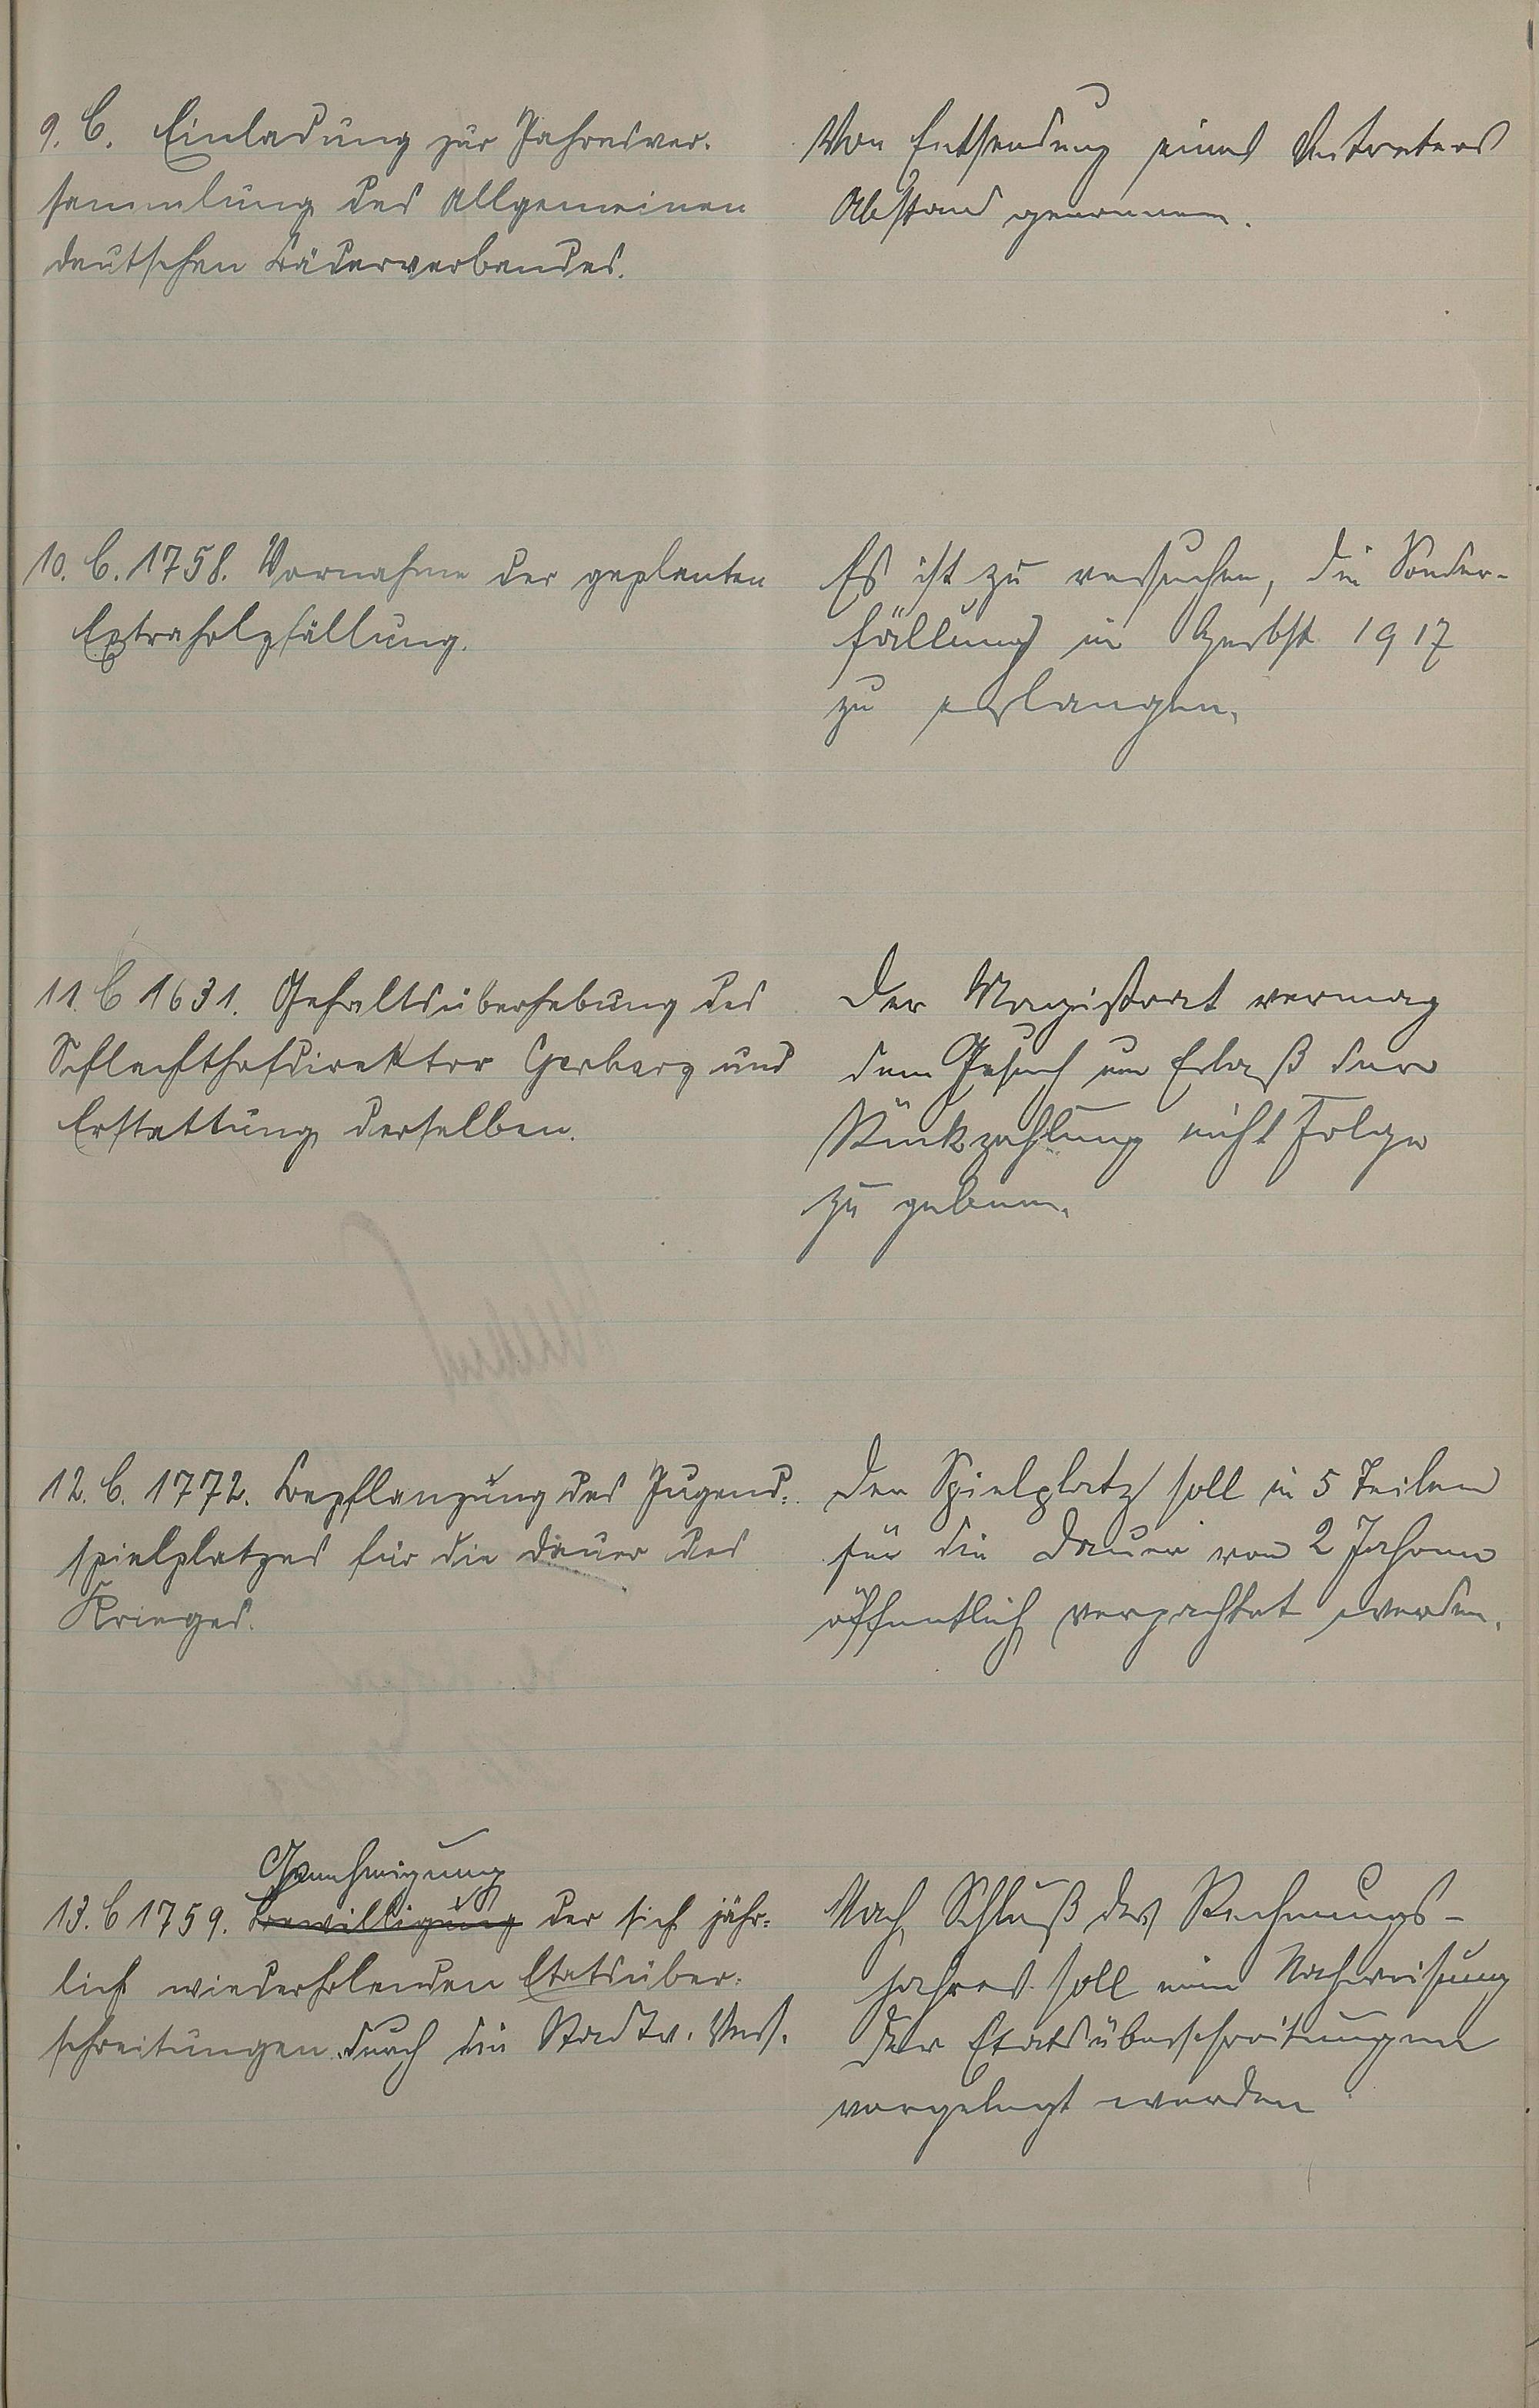 9. C. Einladung zur Jahresver-
sammlung des Allgemeinen
deutschen Bäderverbandes.
Von Entsendung eines Vertreters
Abstand genommen.
10. C. 1758. Vornahme der geplanten
Extraholzfällung.
Es ist zu versuchen, die Sonder-
fällung in Herbst 1917
zu erlangen.
11. C 1631. Gehaltsüberhebung des
Schlachthofdirektor Gerharz und
Erstattung derselben.
Der Magistrat vermag
dem Gesuch um Erlaß der
Rückzahlung nicht Folge
zu geben.
12. C. 1772. Bepflanzung des Jugend-
spielplatzes für die Dauer des
Krieges.
Der Spielplatz soll in 5 Teilen
für die Dauer von 2 Jahren
öffentlich verpachtet werden.
Genehmigung
13. C 1759. Bewilligung der sich jähr-
lich wiederholenden Etatsüber-
schreitungen durch die Stadtv. Vers.
Nach Schluß des Rechnungs-
jahres soll eine Nachweisung
der Etatsüberschreitungen
vorgelegt werden